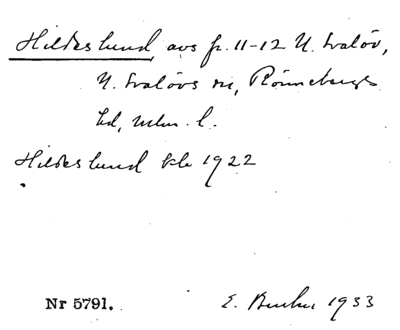 Hildeslund, avs fr. 11-12 N. Svalöv,
N. Svalövs sn, Rönnebergs
hd, Mlm. l.
Hildeslund 1922
Nr 5791. E. 1933